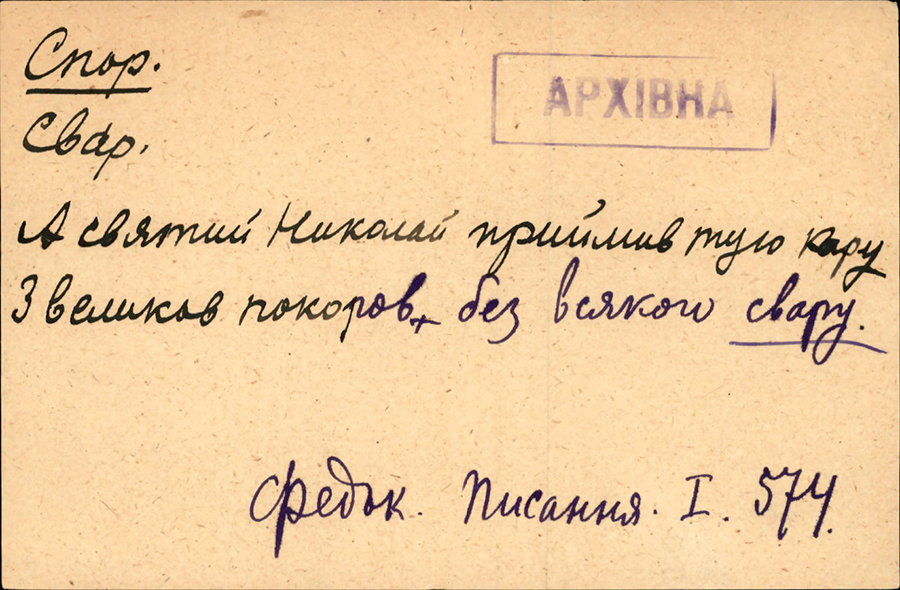 Спор.
АРХІВНА
Свар.
А святий Николай приймив тую кару
З великов покоров, без всякого свару.
Федьк. Писання. I. 574.